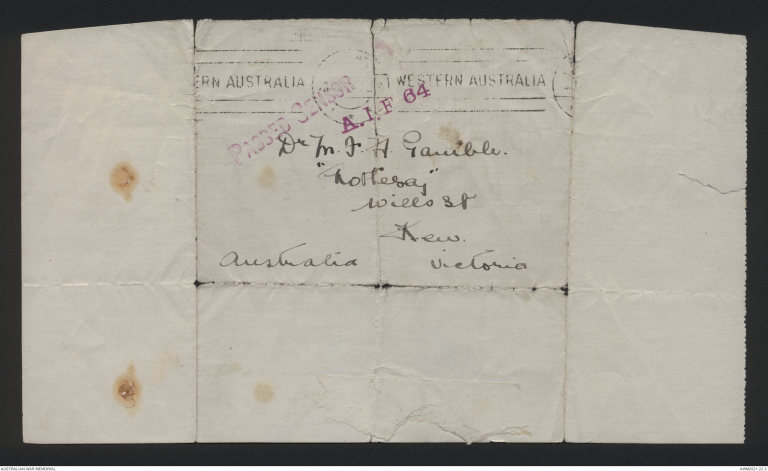 RN AUSTRALIA WESTERN AUSTRALIA
PASSED CENSOR
A.I.F 64
Dr M. F. H. Gamble.
"Rothesay"
Wills St
Kew.
Australia Victoria
AUSTRALIAN WAR MEMORIAL
AWM2021.22.2